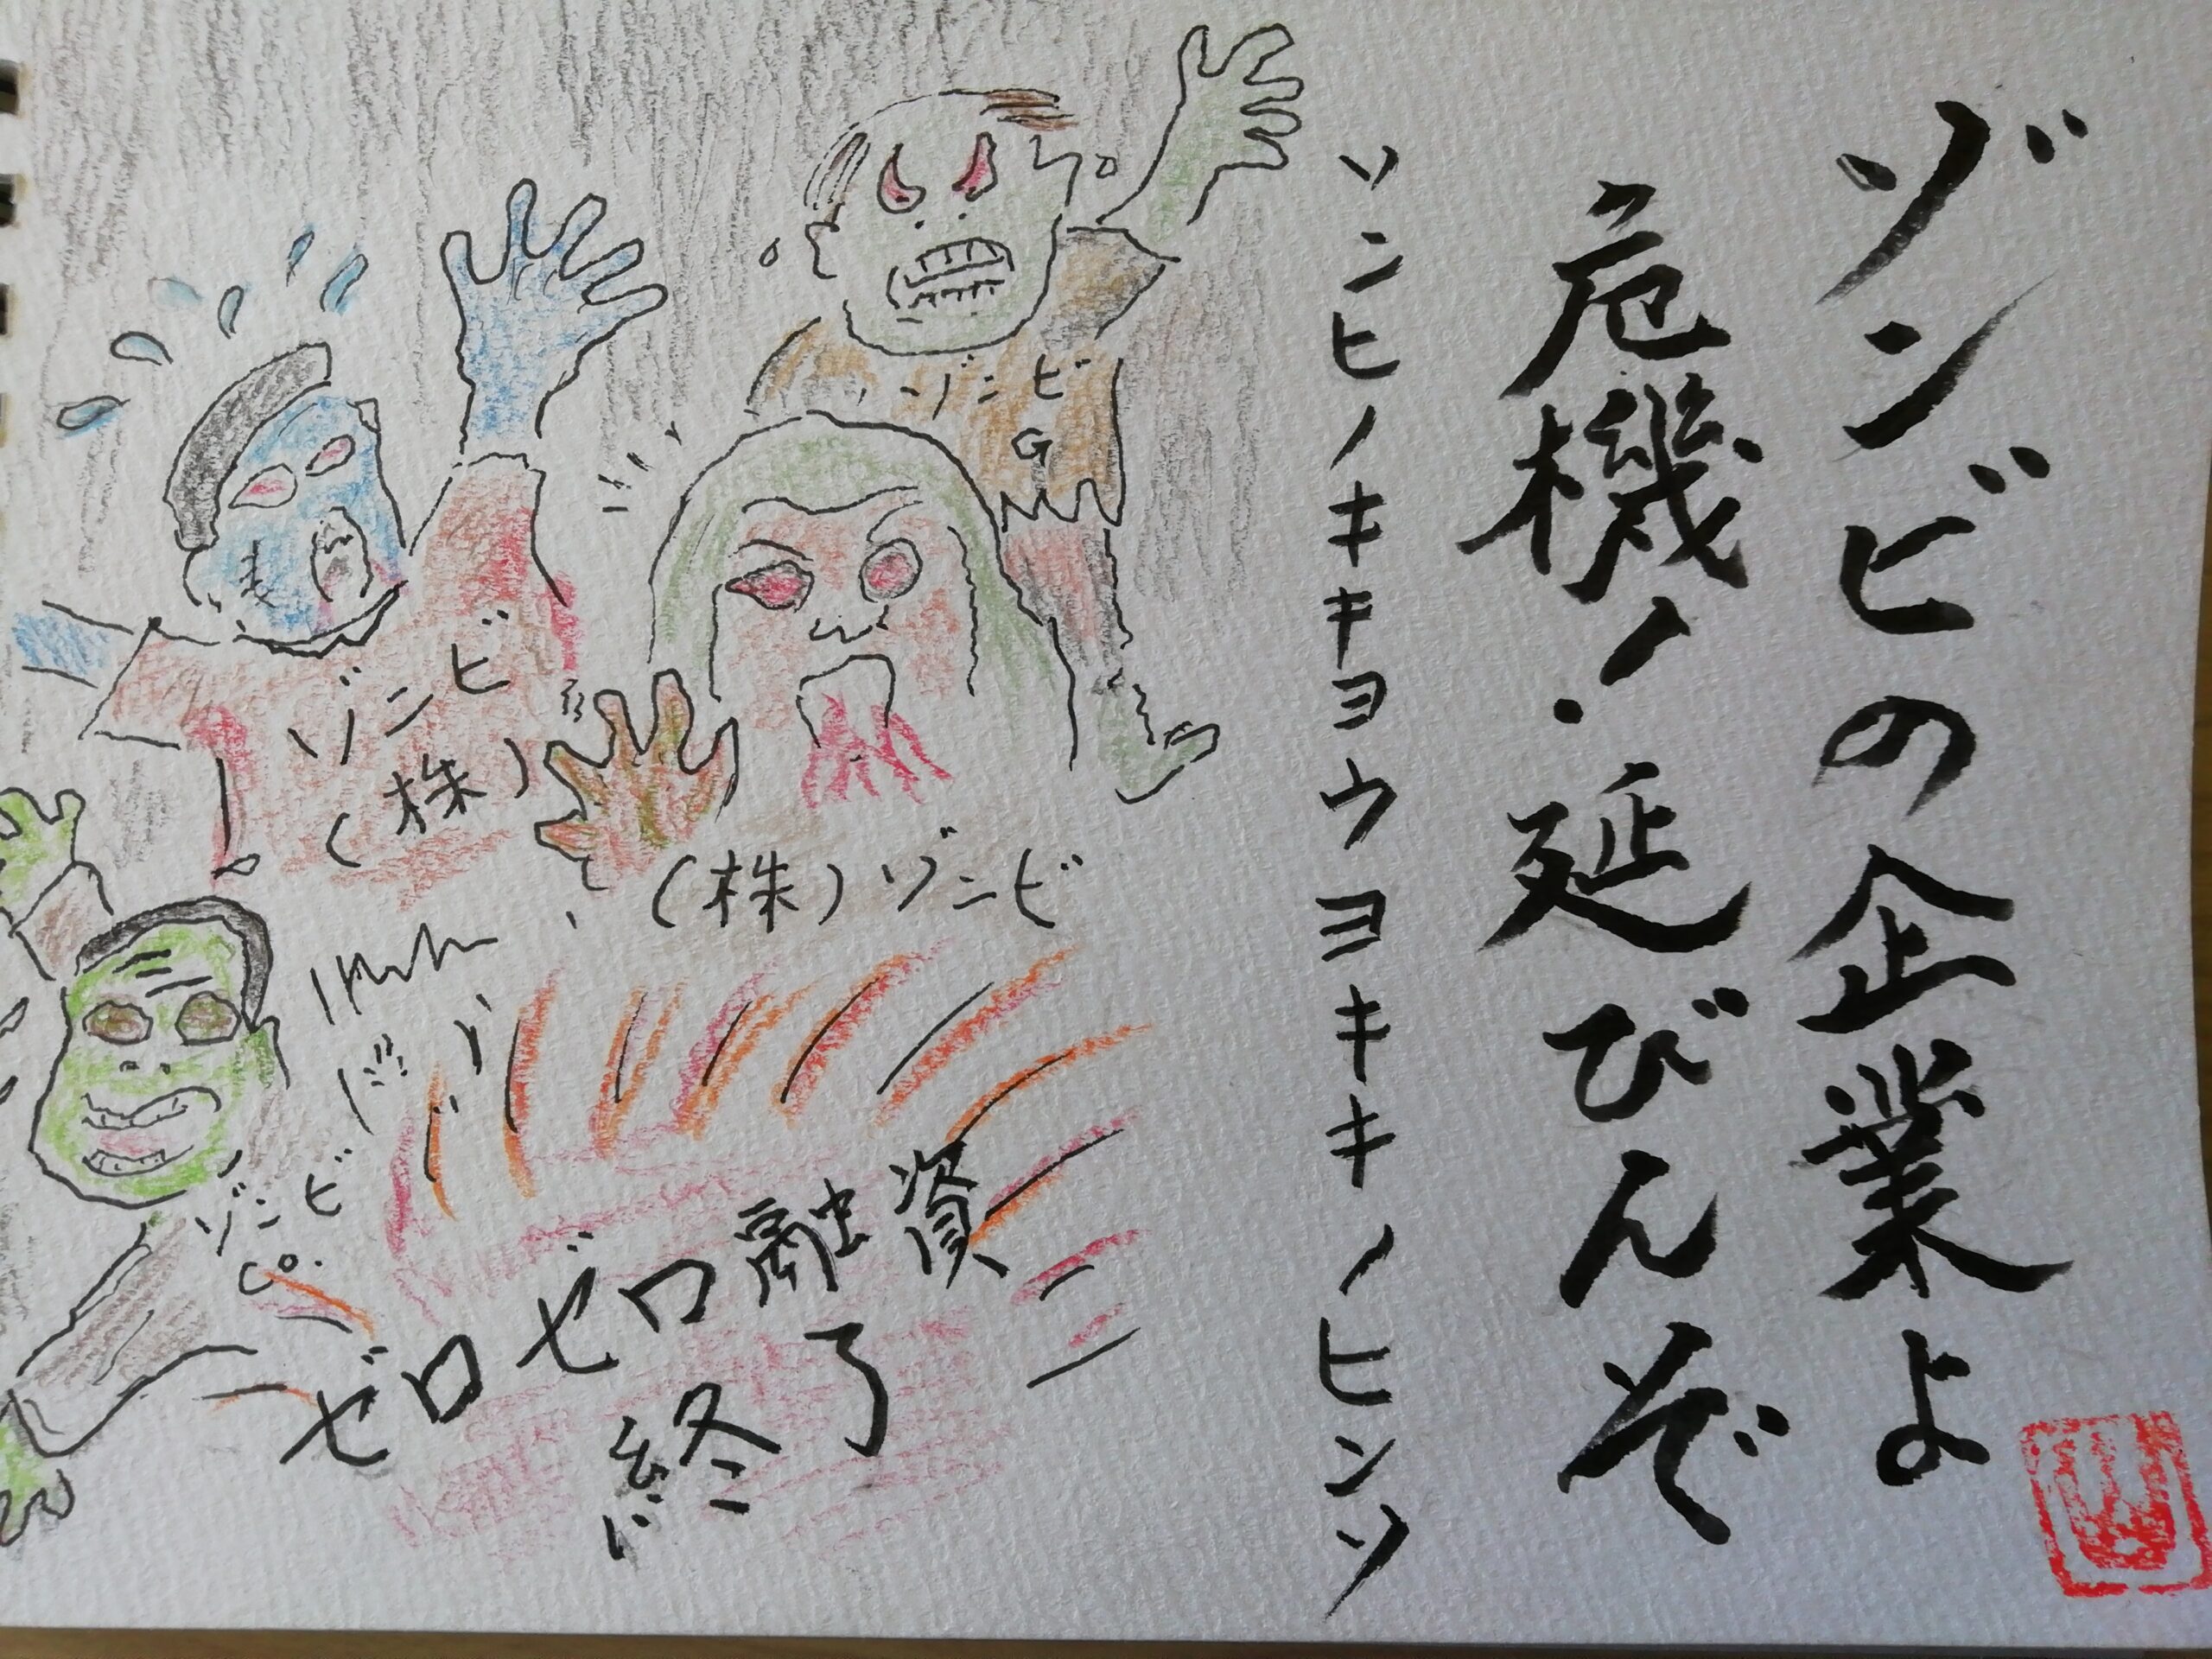 ゾンビの企業よ
危機!延びんぞ
ソンヒノキキヨウヨキキノヒンソ
ゾンビ
G
ゾンビ
(株)
(株)ゾンビ
ゾンビ
co.
ゼロゼロ融資
終了